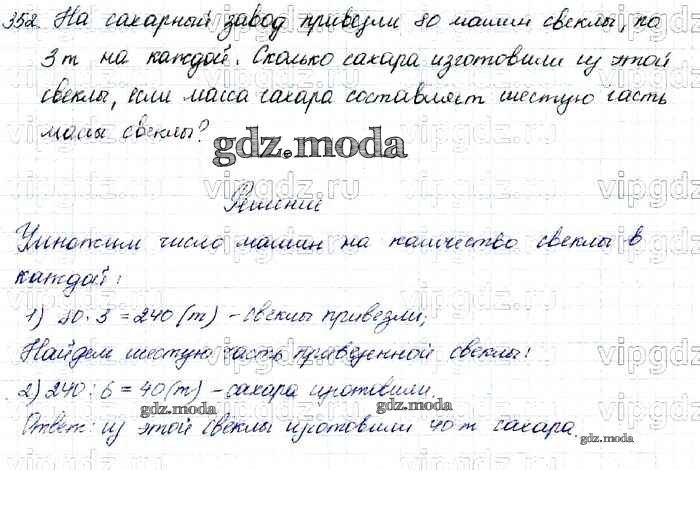 352. На сахарный завод привезли 80 машин свеклы, по
3 т на каждой. Сколько сахара изготовили из этой
свеклы, если масса сахара составляет шестую часть
массы свеклы?
gdz.moda
Решение
Умножим число машин на количество свеклы в
каждой:
1) 80 · 3 = 240 (т) - свеклы привезли;
Найдем шестую часть привезенной свеклы:
2) 240 : 6 = 40 (т) - сахара изготовили.
gdz.moda
gdz.moda
Ответ: из этой свеклы изготовили 40 т сахара.